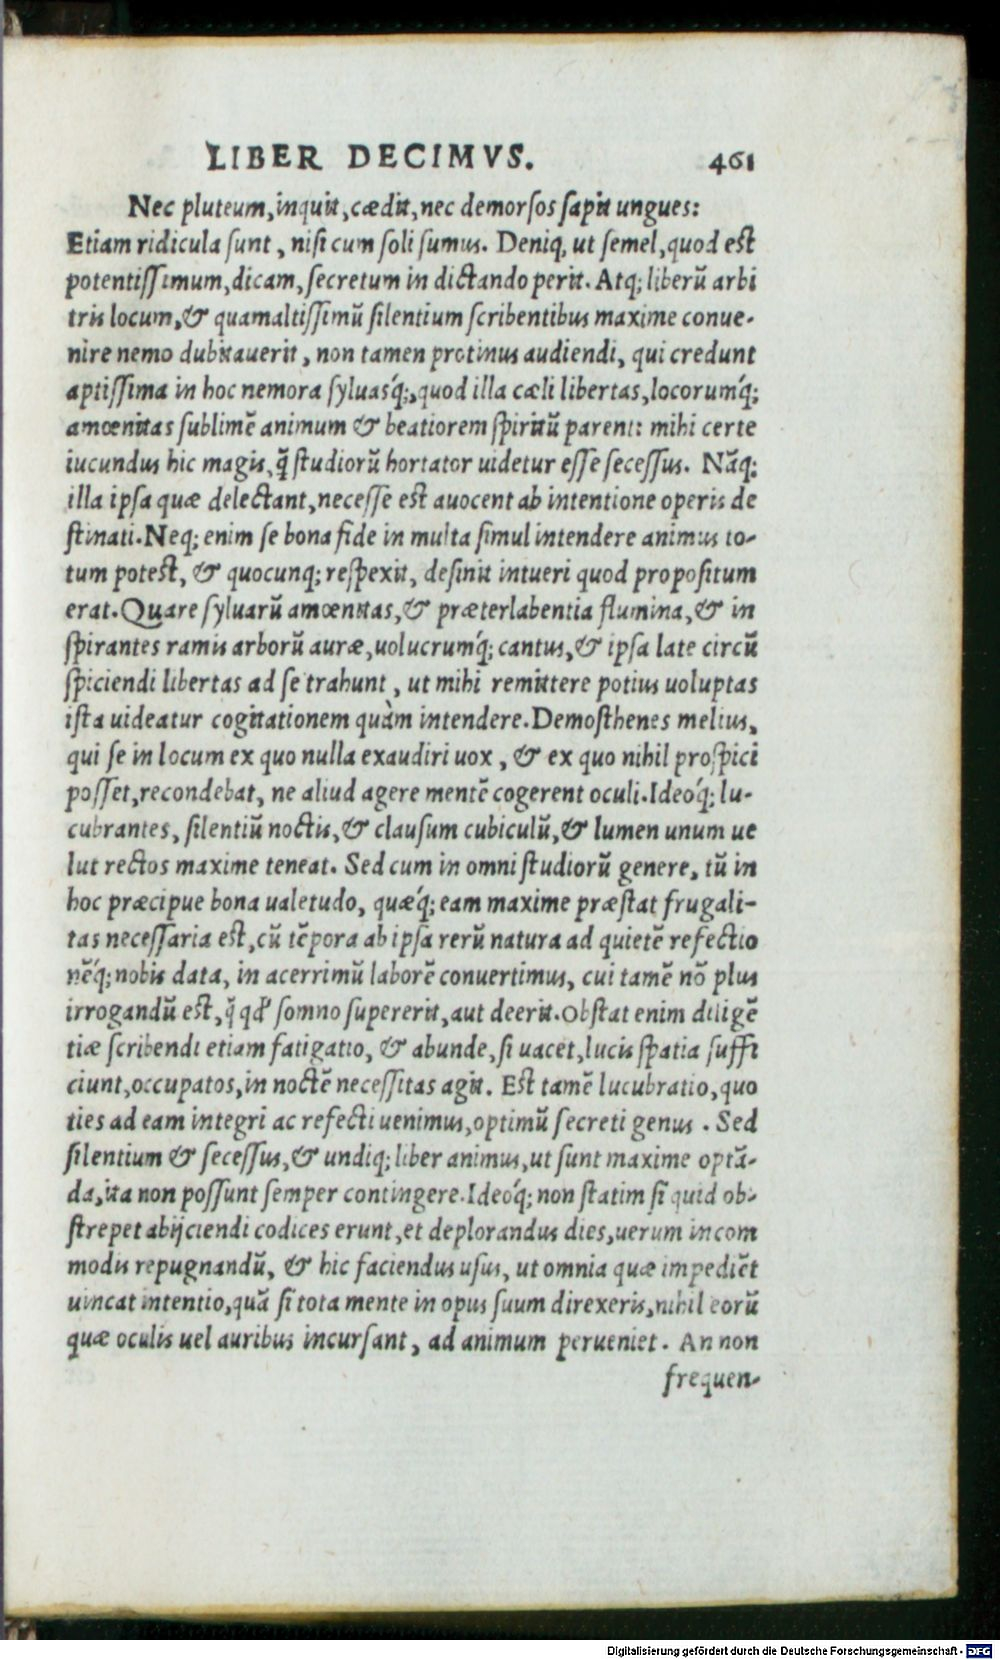 LIBER DECIMVS. 461
Nec pluteum, inquit, cædit, nec demorsos sapit ungues:
Etiam ridicula sunt, nisi cum soli sumus. Deniq, ut semel, quod est
potentissimum, dicam, secretum in dictando perit. Atq; liberũ arbi
tris locum, & quamaltissimũ silentium scribentibus maxime conue-
nire nemo dubitauerit, non tamen protinus audiendi, qui credunt
aptissima in hoc nemora syluasq́;, quod illa cæli libertas, locorumq́;
amœnitas sublimẽ animum & beatiorem spiritũ parent: mihi certe
iucundus hic magis, q̃ studiorũ hortator uidetur esse secessus. Nãq;
illa ipsa quæ delectant, necesse est auocent ab intentione operis de
stinati. Neq; enim se bona fide in multa simul intendere animus to-
tum potest, & quocunq; respexit, desinit intueri quod propositum
erat. Quare syluarũ amœnitas, & præterlabentia flumina, & in
spirantes ramis arborũ auræ, uolucrumq́; cantus, & ipsa late circũ
spiciendi libertas ad se trahunt, ut mihi remittere potius uoluptas
ista uideatur cogitationem quàm intendere. Demosthenes melius,
qui se in locum ex quo nulla exaudiri uox, & ex quo nihil prospici
posset, recondebat, ne aliud agere mentẽ cogerent oculi. Ideoq́; lu-
cubrantes, silentiũ noctis, & clausum cubiculũ, & lumen unum ue
lut rectos maxime teneat. Sed cum in omni studiorũ genere, tũ in
hoc præcipue bona ualetudo, quæq́; eam maxime præstat frugali-
tas necessaria est, cũ tẽpora ab ipsa rerũ natura ad quietẽ refectio
nẽq́; nobis data, in acerrimũ laborẽ conuertimus, cui tamẽ nõ plus
irrogandũ est, q̃ qđ somno supererit, aut deerit. Obstat enim diligẽ
tiæ scribendi etiam fatigatio, & abunde, si uacet, lucis spatia suffi
ciunt, occupatos, in noctẽ necessitas agit. Est tamẽ lucubratio, quo
ties ad eam integri ac refecti uenimus, optimũ secreti genus. Sed
silentium & secessus, & undiq; liber animus, ut sunt maxime optã-
da, ita non possunt semper contingere. Ideoq́; non statim si quid ob-
strepet abijciendi codices erunt, et deplorandus dies, uerum incom
modis repugnandũ, & hic faciendus usus, ut omnia quæ impediẽt
uincat intentio, quã si tota mente in opus suum direxeris, nihil eorũ
quæ oculis uel auribus incursant, ad animum perueniet. An non
frequen-
Digitalisierung gefördert durch die Deutsche Forschungsgemeinschaft - DFG